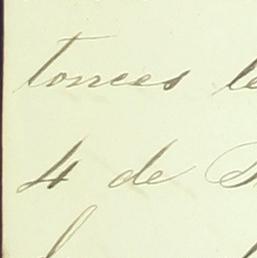 tonces le
4 de